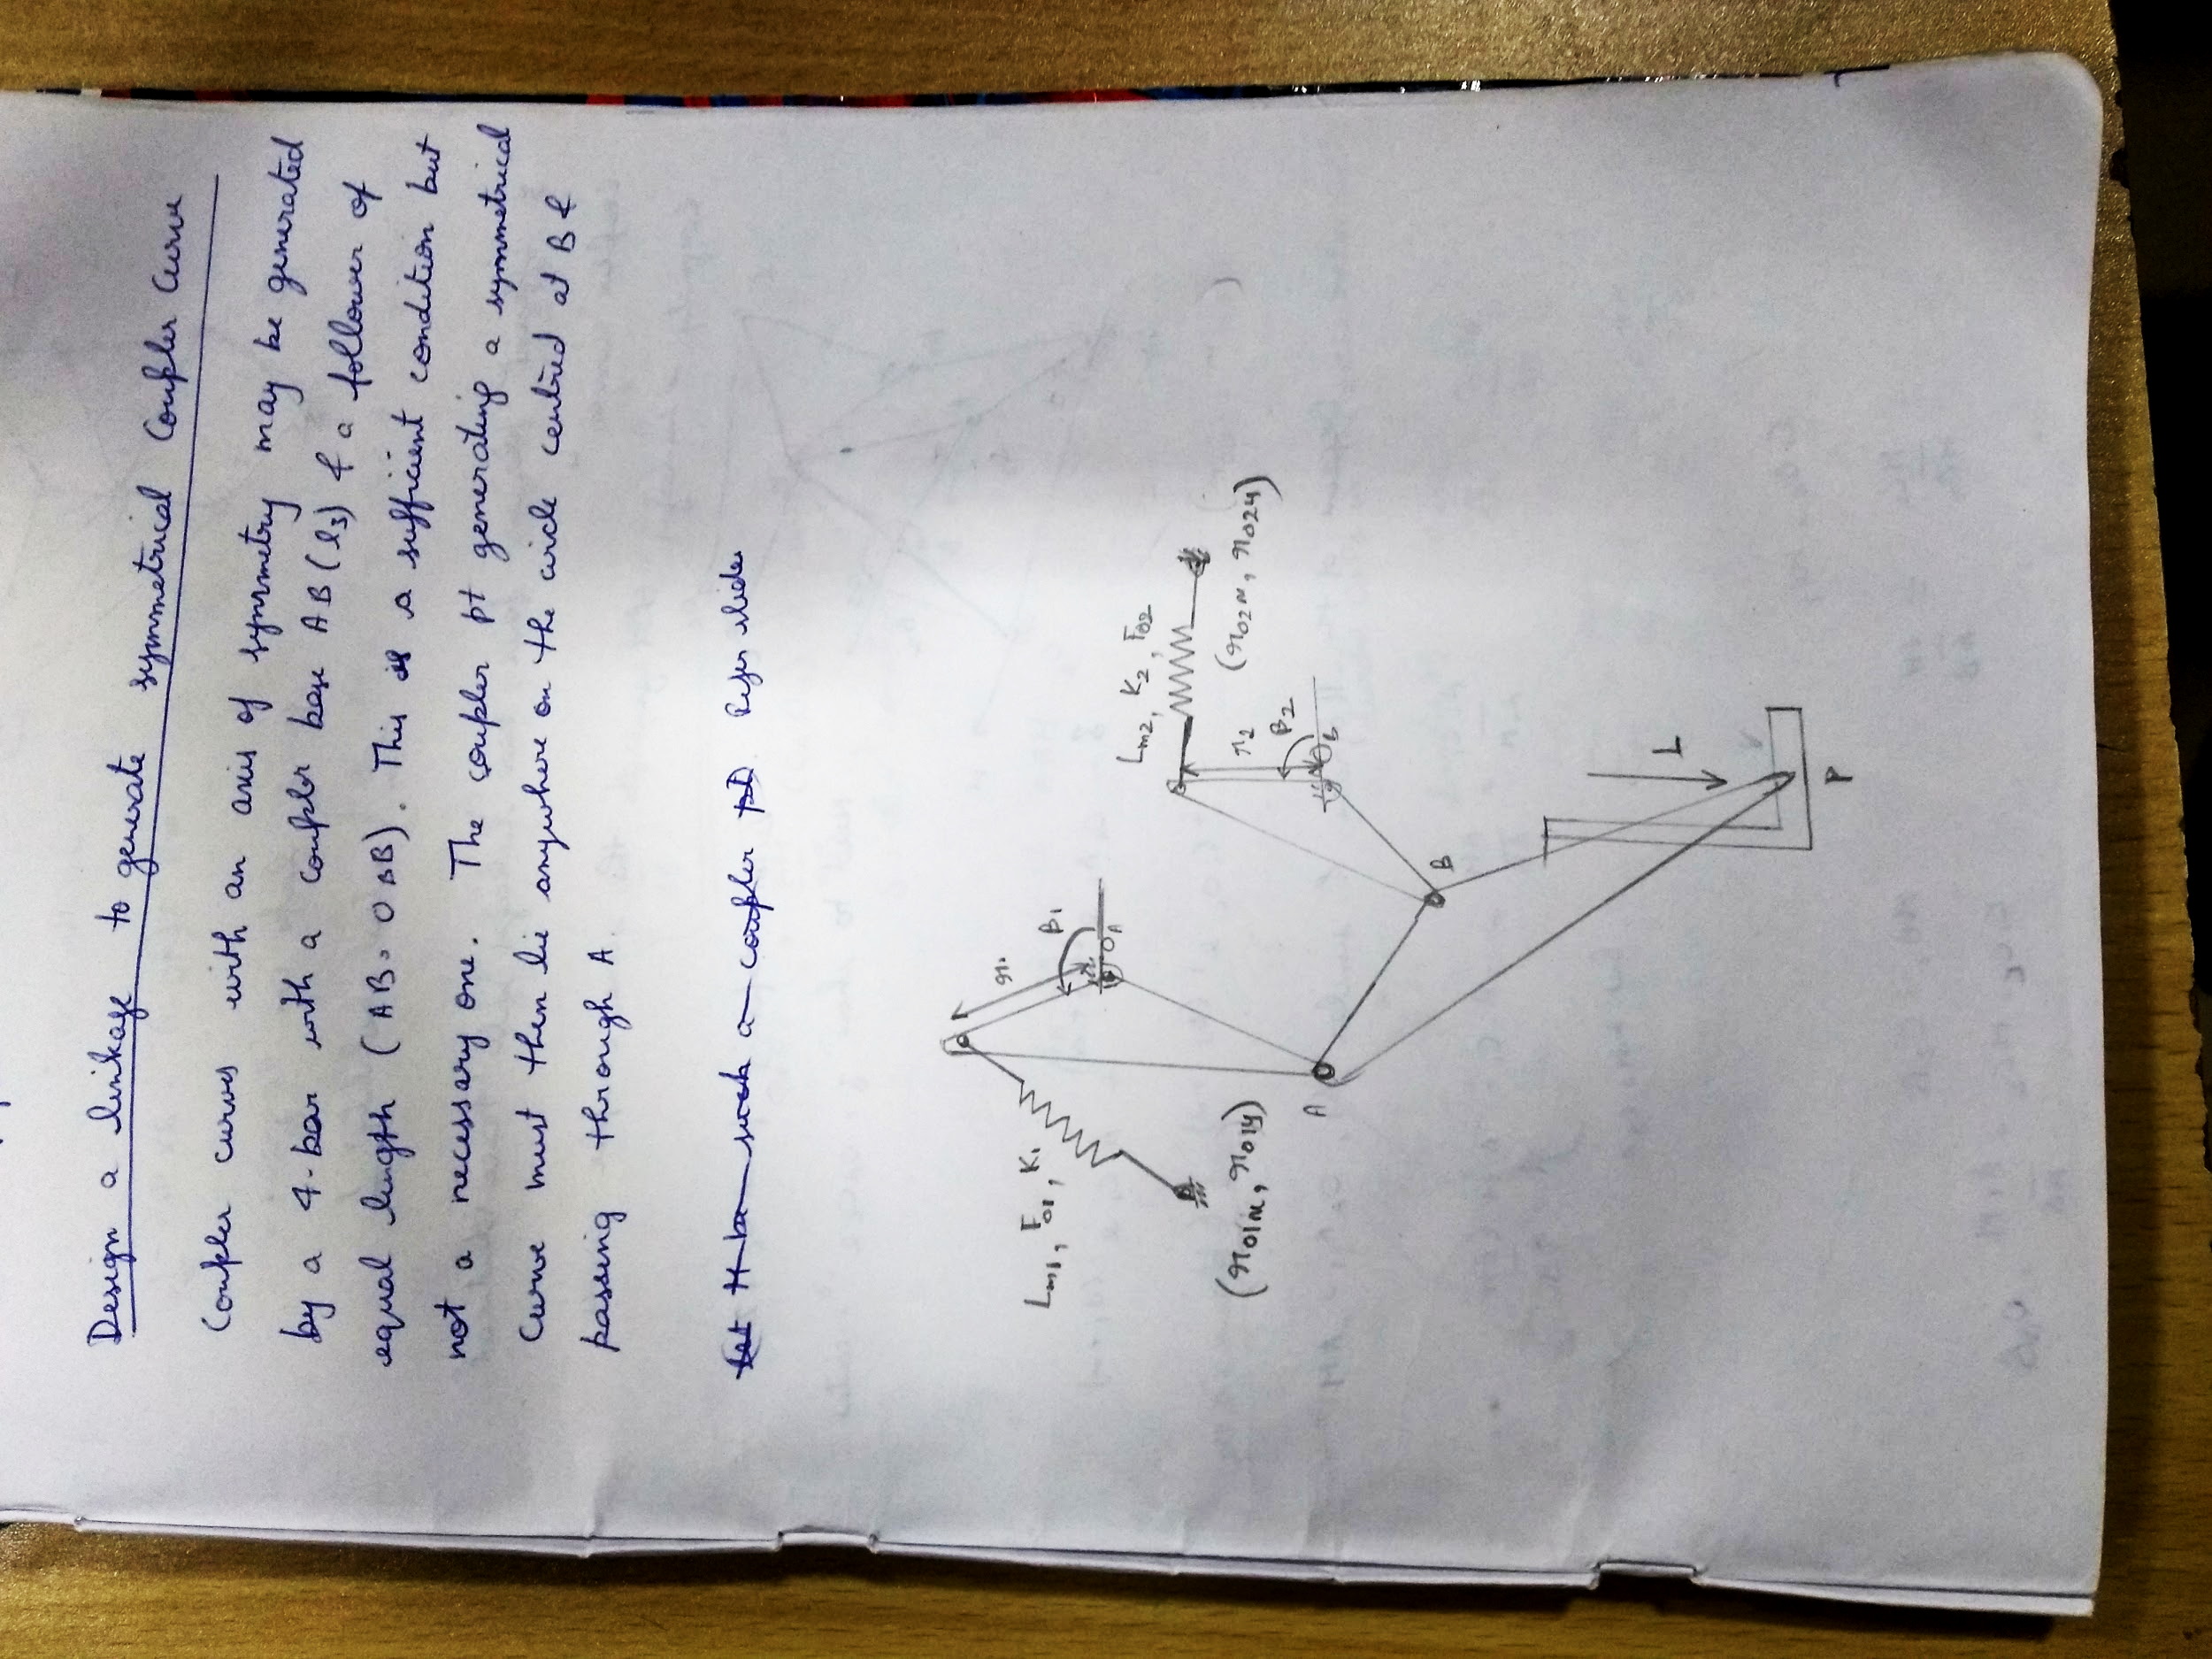 Design a linkage to generate symmetrical Coupler Curve
Coupler curves with an axis of symmetry may be generated
by a 4-bar with a coupler base AB (l3) & a follower of
equal length (AB = OBB). This is a sufficient condition but
not a necessary one. The coupler pt generating a symmetrical
curve must then lie anywhere on the circle centred at B &
passing through A.
Let H be such a coupler pt. Refer slides
Lm1, F01, K1
r1
β1
OA
(r01x, r01y)
A
Lm2, K2, F02
r2
β2
OB
(r02x, r02y)
B
L
P